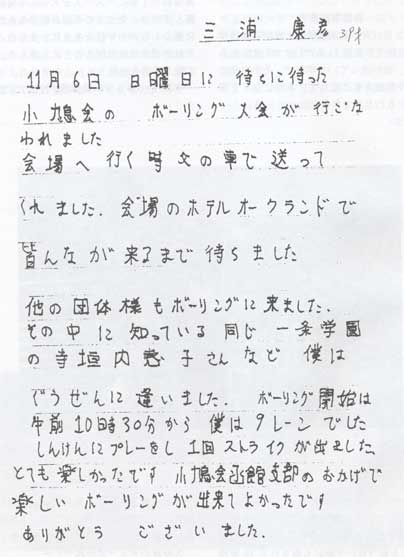 三浦 康
11月6日 日曜日に 待ちに待った
小鳩会の ボーリング大会が行こな
われました
会場へ行く時父の車で送って
くれました。会場のホテルオークランドで
皆んなが来るまで待ちました
他の団体様もボーリングに来ました。
その中に知っている同じ一条学園
の寺垣内恵子さんなど 僕は
ぐうぜんに逢いました。 ボーリング開始は
午前10時30分から 僕は9レーンでした
しんけんにプレーをし 1回ストライクが出ました、
とても楽しかったです 小鳩会函館支部のおかげで
楽しい ボーリングが出来てよかったです
ありがとう ございました.